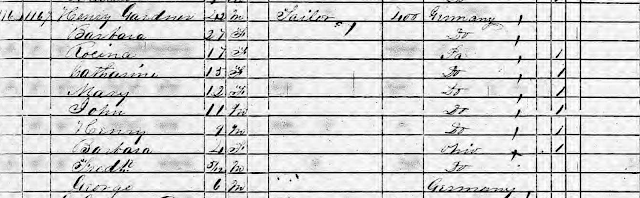 1167 Henry Gardner 42 M Tailor 400 Germany
Barbara 27 F Do
Rosina 17 F Pa 1
Catharine 15 F Do 1
Mary 12 F Do 1
John 11 M Do 1
Henry 9 M Do 1
Barbara 4 F Ohio 1
Fredk 5/12 M Do
George 6 M Germany